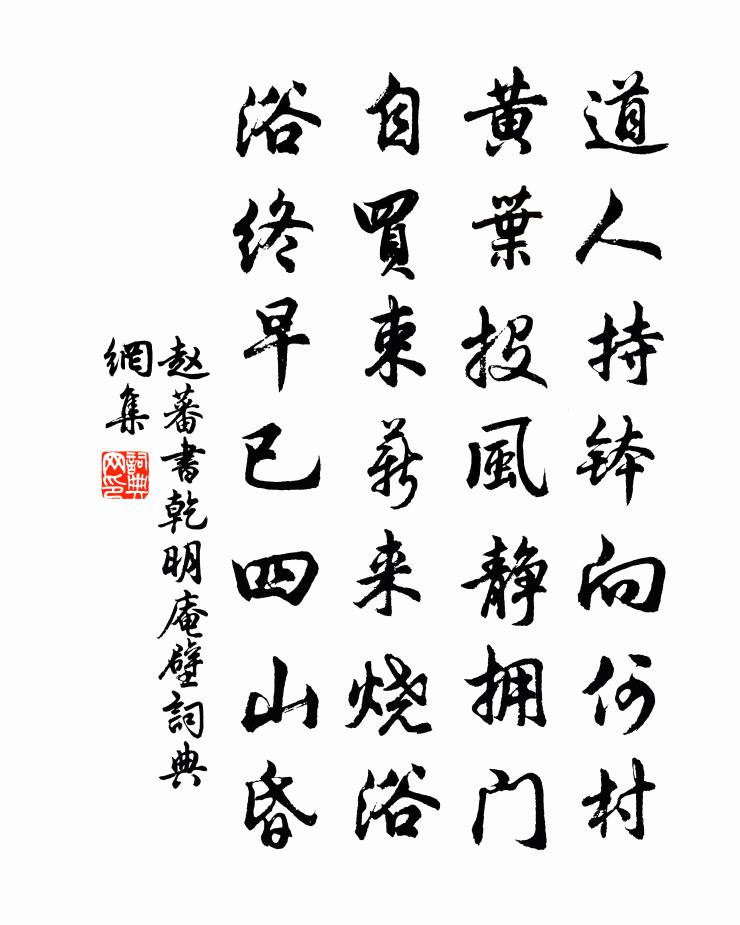 道人持鉢向何村
黄葉投風静拥门
自買束薪来烧浴
浴终早已四山昏
赵蕃書乾明庵壁詞典
網集
詞典
网印